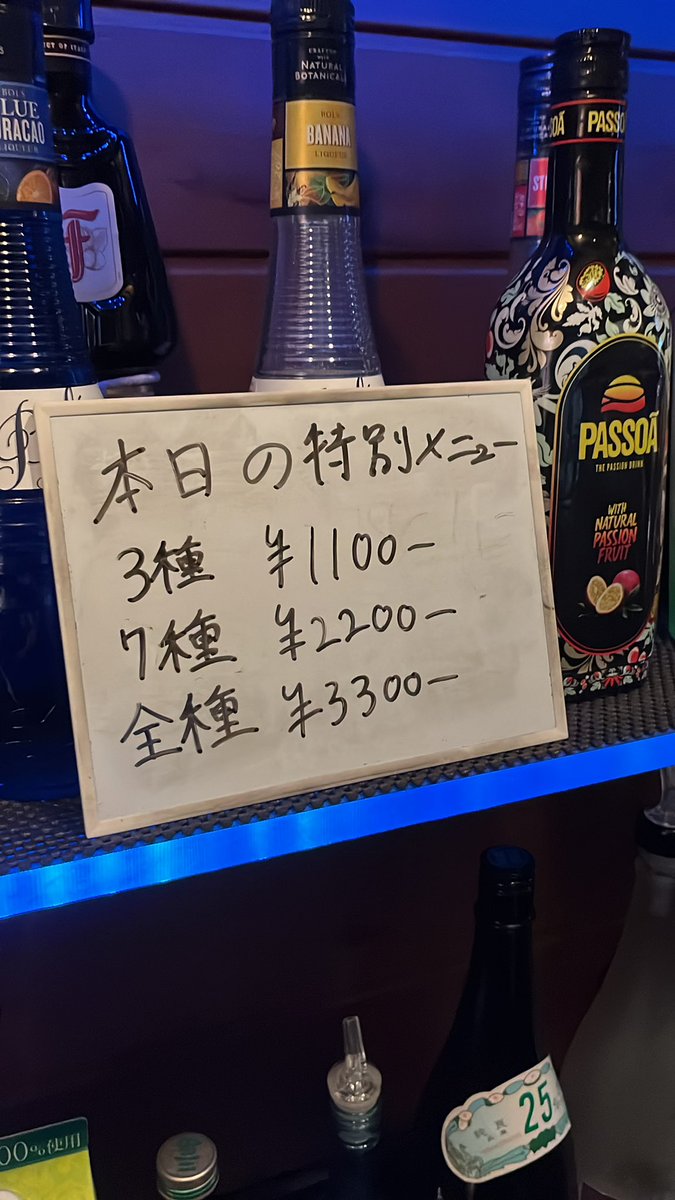 BOLS
BLUE
CURACAO
LIQUEUR
CRAFTED
WITH
NATURAL
BOTANICALS
BOLS
BANANA
LIQUEUR
PASSOÃ
PASSOÃ
THE PASSION DRINK
WITH
NATURAL
PASSION
FRUIT
本日の特別メニュー
3種 ¥1100-
7種 ¥2200-
全種 ¥3300-
25
00%使用